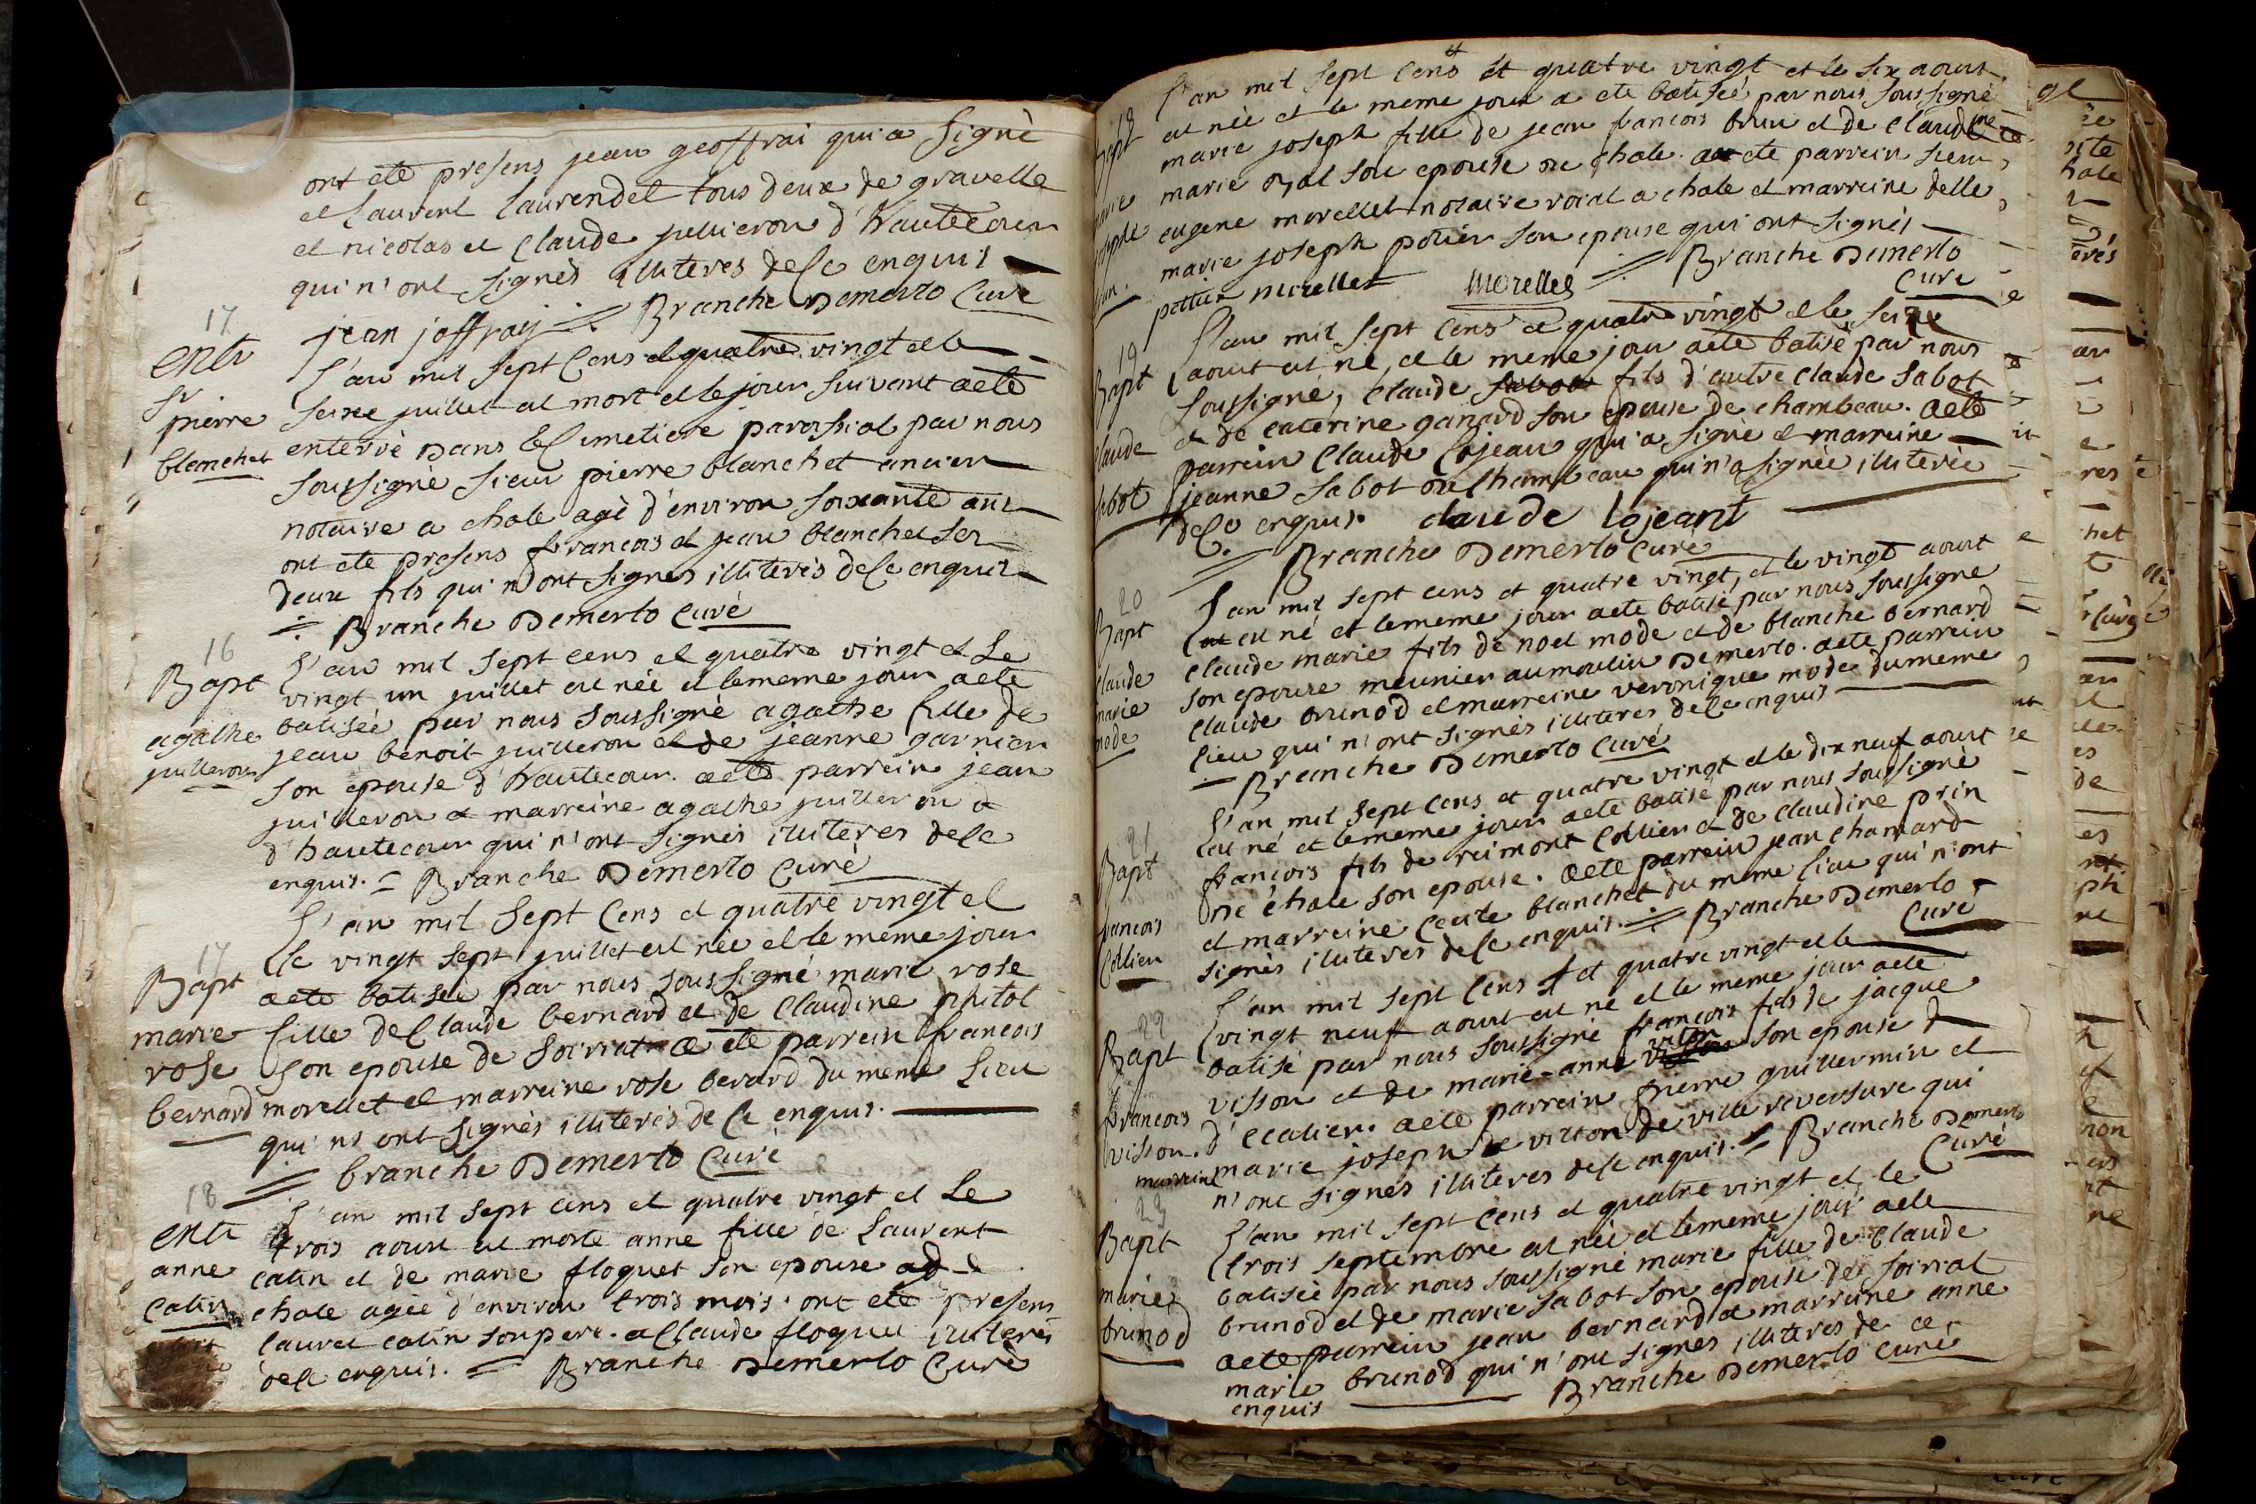 ont ete presens jean geoffrai qui a signè
et laurent laurendet tous deux de gravelle
et nicolas et claude juilleron d'hautecour
qui n'ont signès illiteres de ce enquis
jean joffray Branche Demerlo Curè
17
entr
sr
pierre
blanchet
L'an mil sept cens et quatre vingt et le
seize juillet est mort et le jour suivant a ete
enterrè dans le cimetiere paroissial par nous
soussignè sieur pierre blanchet ancien
notaire a chale agè d'environ soixante ans
ont ete presens francois et jean blanchet ses
deux fils qui n'ont signes illiterès de ce enquis
Branche Demerlo Curè
16
Bapt
agathe
juilleron
L'an mil sept cens et quatre vingt et le
vingt un juillet est née et le meme jour a ete
batisée par nous soussigné agathe fille de
jean benoit juilleron et de jeanne garnier
son epouse d'hautecour. a ete parrein jean
juilleron et marreine agathe juilleron d
d'hautecour qui n'ont signès illiteres de ce
enquis. Branche Demerlo Curè
17
Bapt
marie
rose
bernard
L'an mil sept cens et quatre vingt et
le vingt sept juillet est née et le meme jour
a ete batisée par nous soussigné marie rose
fille de claude bernard et de claudine putot
son epouse de soiriat a ete parrein francois
morellet et marreine rose berard du meme lieu
qui ni ont signès illiterés de ce enquis.
branche Demerlo Curé
18
entr
anne
catin
L'an mil sept cens et quatre vingt et le
trois aoust est morte anne fille de laurent
catin et de marie floquet son epouse ad
chale agée d'environ trois mois. ont ete presens
lauret catin son pere. et claude floquet illiterés
de ce enquis. Branche Demerlo Curè
18
Bapt
marie
josephe
brun.
L'an mil sept cens et quatre vingt et le six aoust
est née et le meme jour a ete batisée par nous soussigné
marie joseph fille de jean francois brun et de claudine
marie oyat son epouse de chale. a ete parrein sieur
eugene morellet notaire roial a chale et marreine delle
marie joseph potier son epouse qui ont signès
pottier morellet Morellet Branche Demerlo
Cure
19
Bapt
claude
sabot
L'an mil sept cens et quatre vingt et le seize
aoust est né, et le meme jour a ete batisè par nous
soussigné, claude sabot fils d'autre claude sabot
et de caterine ganard son epouse de chambeau. a ete
parrein claude lojean qui a signè et marreine
jeanne sabot de chambeau qui n'a signée illiterée
de ce enquis. claude lojeant
Branche Demerlo Curè
20
Bapt
claude
marie
mode
L'an mil sept cens et quatre vingt, et le vingt aoust
est né et le meme jour a ete batisé par nous soussigné
claude marie fils de noel mode et de blanche bernard
son epouse meunier au moulin Demerlo. a ete parrein
claude brunod et marreine veronique mode du meme
lieu qui n'ont signès illiteres de ce enquis
Branche Demerlo Curé
21
Bapt
francois
Collien
L'an mil sept cens et quatre vingt et le dix neuf aoust
est né et le meme jour a ete batisé par nous soussigné
francois fils de reimont collien et de claudine prin
de chale son epouse. a ete parrein jean chanard
et marreine cecile blanchet du meme lieu qui n'ont
signès illiteres de ce enquis. Branche Demerlo
Curè
22
Bapt
francois
visson.
L'an mil sept cens et quatre vingt et le
vingt neuf aoust est né et le meme jour a ete
batisé par nous soussigné francois fils de jacque
visson et de marie-anne viton son epouse d
d'ecatier. a ete parrein pierre guillermin et
marreine marie joseph de vitton de ville reversure qui
n'ont signès illiteres de ce enquis. Branche Demerlo
Curé
23
Bapt
marie
brunod
L'an mil sept cens et quatre vingt et le
trois septembre est née et le meme jour a ete
batisée par nous soussigné marie fille de claude
brunod et de marie sabot son epouse de soiriat
a ete parrein jean bernard et marreine anne
marie brunod qui n'ont signes illiteres de ce
enquis Branche Demerlo curé